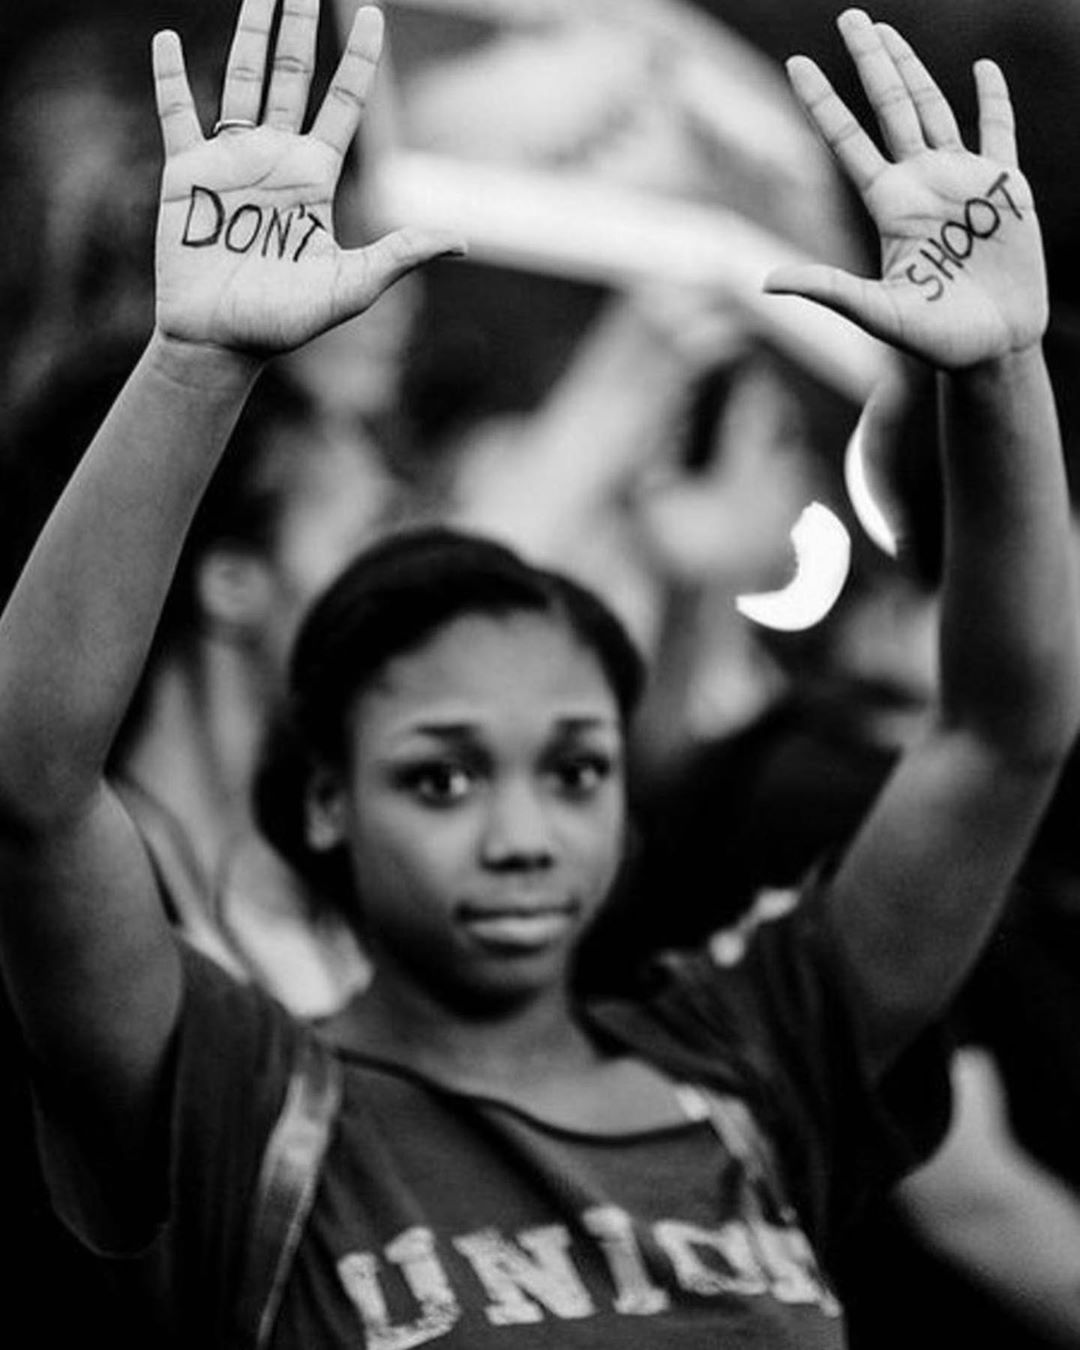 DON'T
SHOOT
UNION